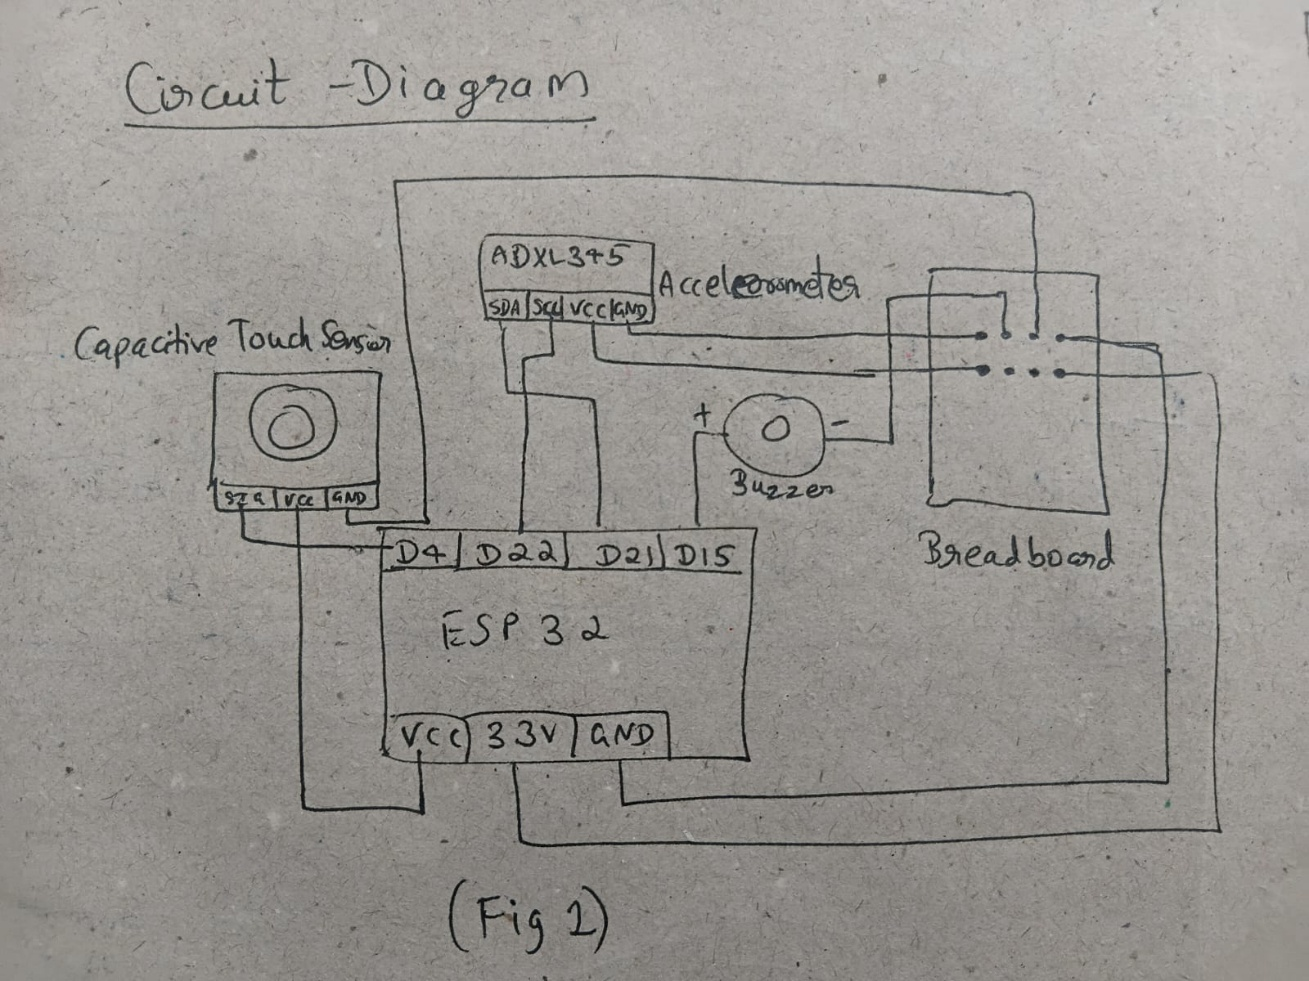 Circuit - Diagram
ADXL345
Accelerometer
SDA SCL VCC GND
Capacitive Touch Sensor
SIG VCC GND
+ -
Buzzer
Breadboard
D4 D22 D21 D15
ESP 32
VCC 33V GND
(Fig 2)